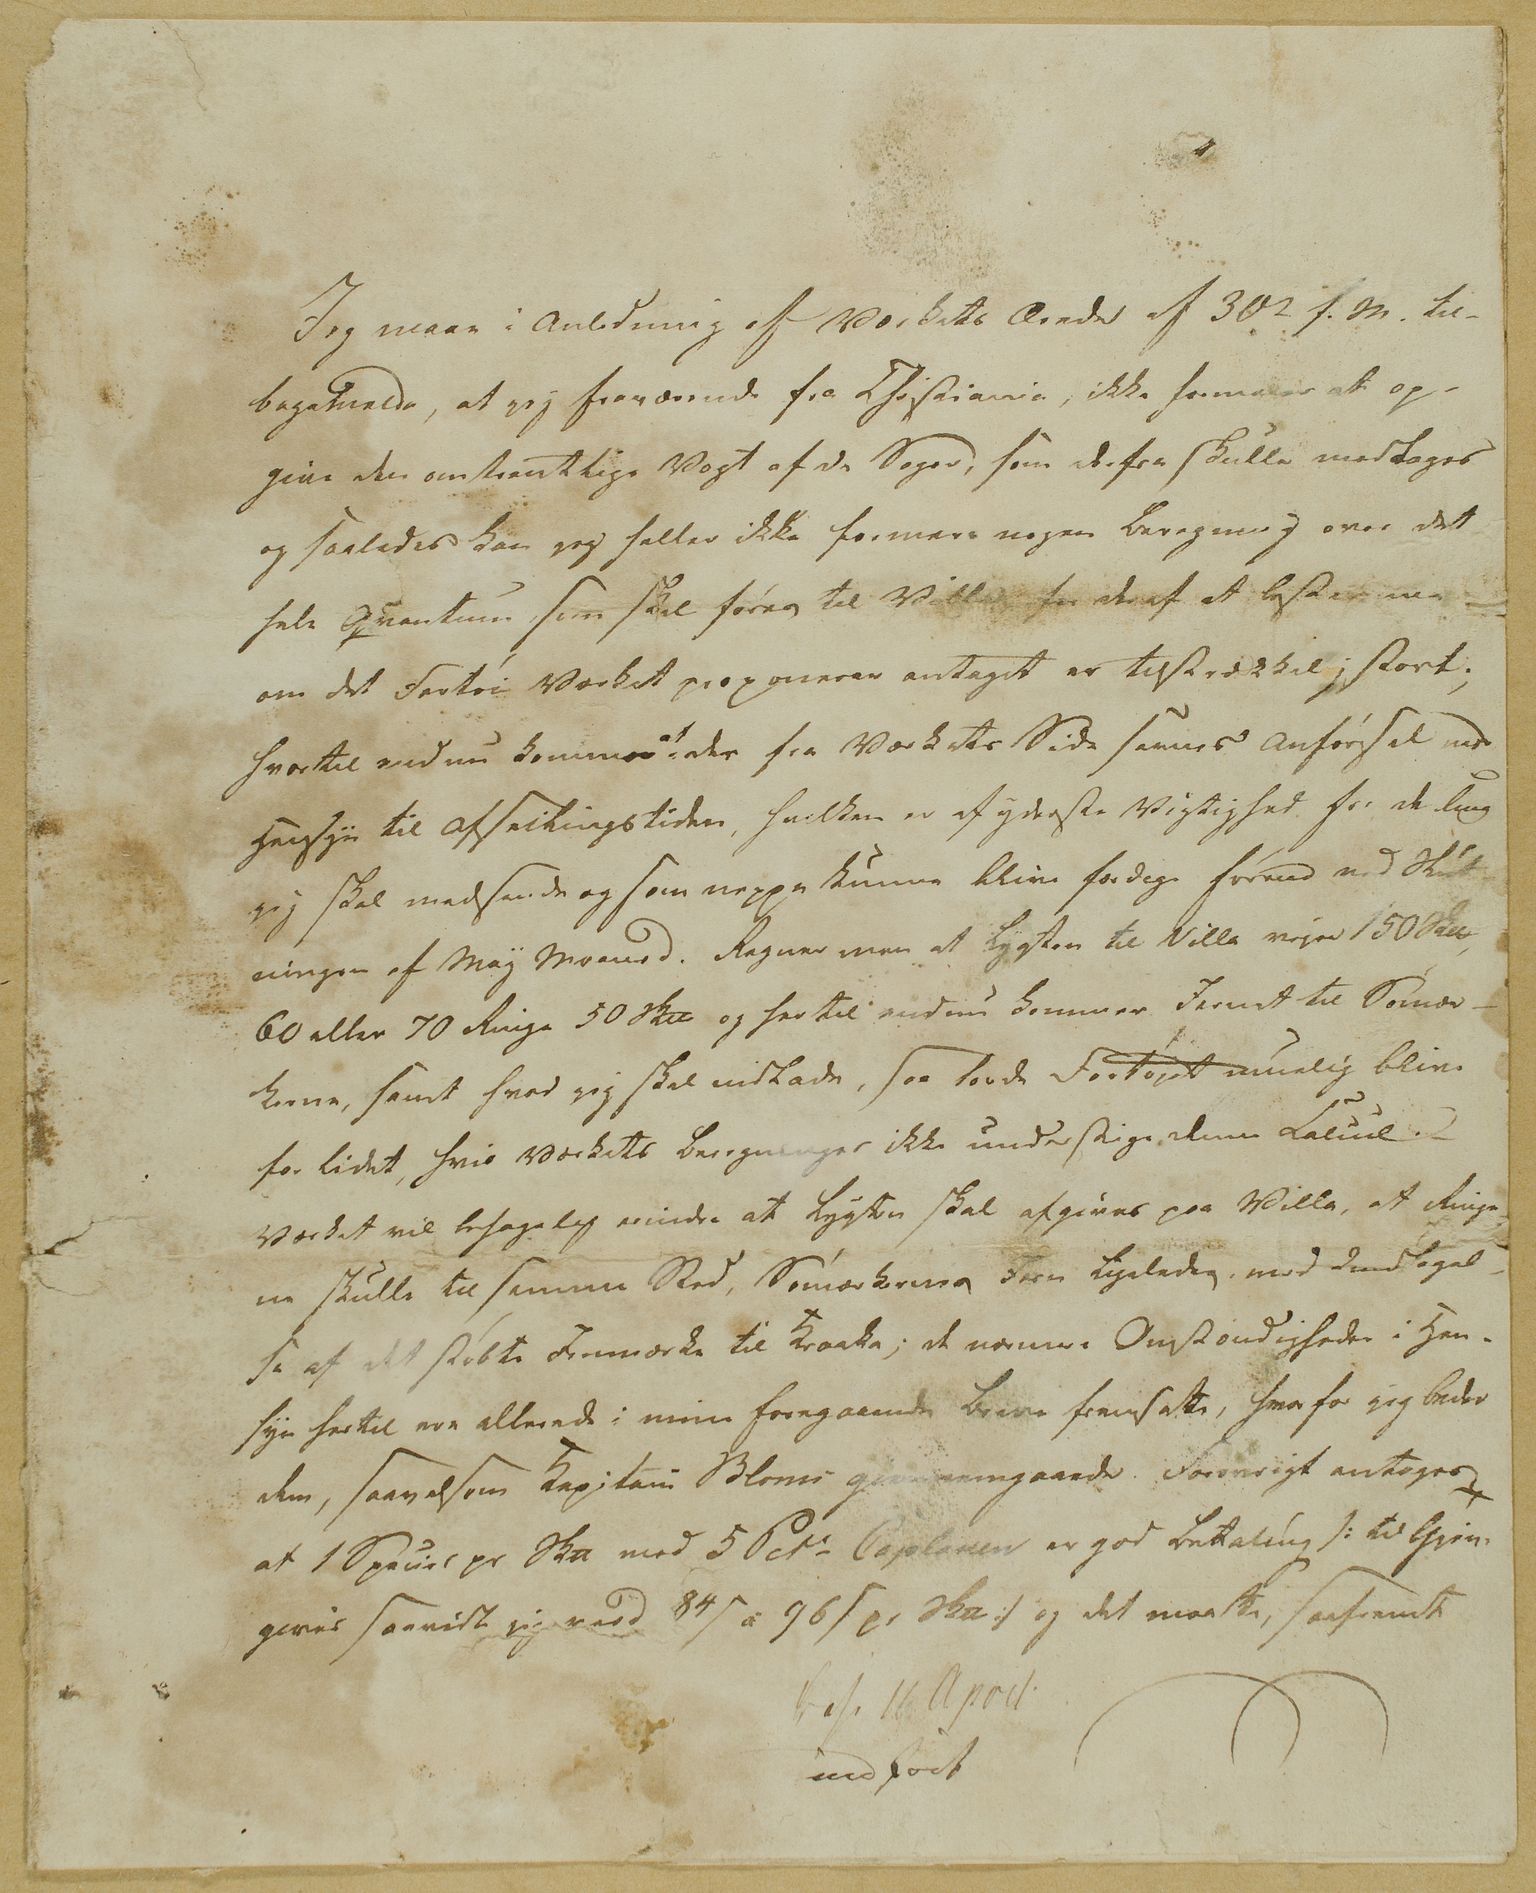 Jeg maae i Anledning af Værkets Ærede af 30te f. M. til-
bagemelde, at jeg fraværende fra Christiania, ikke formaaer at op-
give den omtrentlige Vægt af de Sager, som derfra skulle medtages
og saaledes kan jeg heller ikke formere nogen Beregning over det
hele Qvantum som skal føres til Villa for deraf at bestemme
om det Fartøi Værket proponerer antaget er tilstrækkelig stort;
hvortil endnu kommer at der fra Værkets Side savnes Anførsel med
Hensyn til Afseilingstiden, hvilken er af yderste Vigtighed for de Ting
jeg skal medsende og som neppe kunne blive færdige førend ved Slut-
ningen af Maÿ Maaned. Regner man at Lygten til Villa vejer 150 Sk℔,
60 eller 70 Ringe 50 Sk℔ og hertil endnu kommer Jernet til Sømær-
kerne, samt hvad jeg skal indlade, saa torde Fartøjet muelig blive
for lidet, hvis Værkets Beregninger ikke understige denne Calcul.
Værket vil behagelig erindre at Lygten skal afgives paa Villa, at Ringe-
ne skulle til samme Sted, Sømærkernes Jern ligeledes, med Undtagel-
se af det støbte Jernmærke til Kraaka; de nærmere Omstændigheder i Hen-
syn hertil ere allerede i mine foregaaende Breve fremsatte, hvorfor jeg beder
dem, saavelsom Kapitain Bloms gjennemgaaede. Forøvrigt antages
at 1 Specie pr Sk℔ med 5 Pct. Caplaken er god Bettaling /: til Gjen-
gevis saavidt jeg veed 84 s a 96 s pr Sk℔ :/ og det maatte, saafremt
besv. 16 April
indført